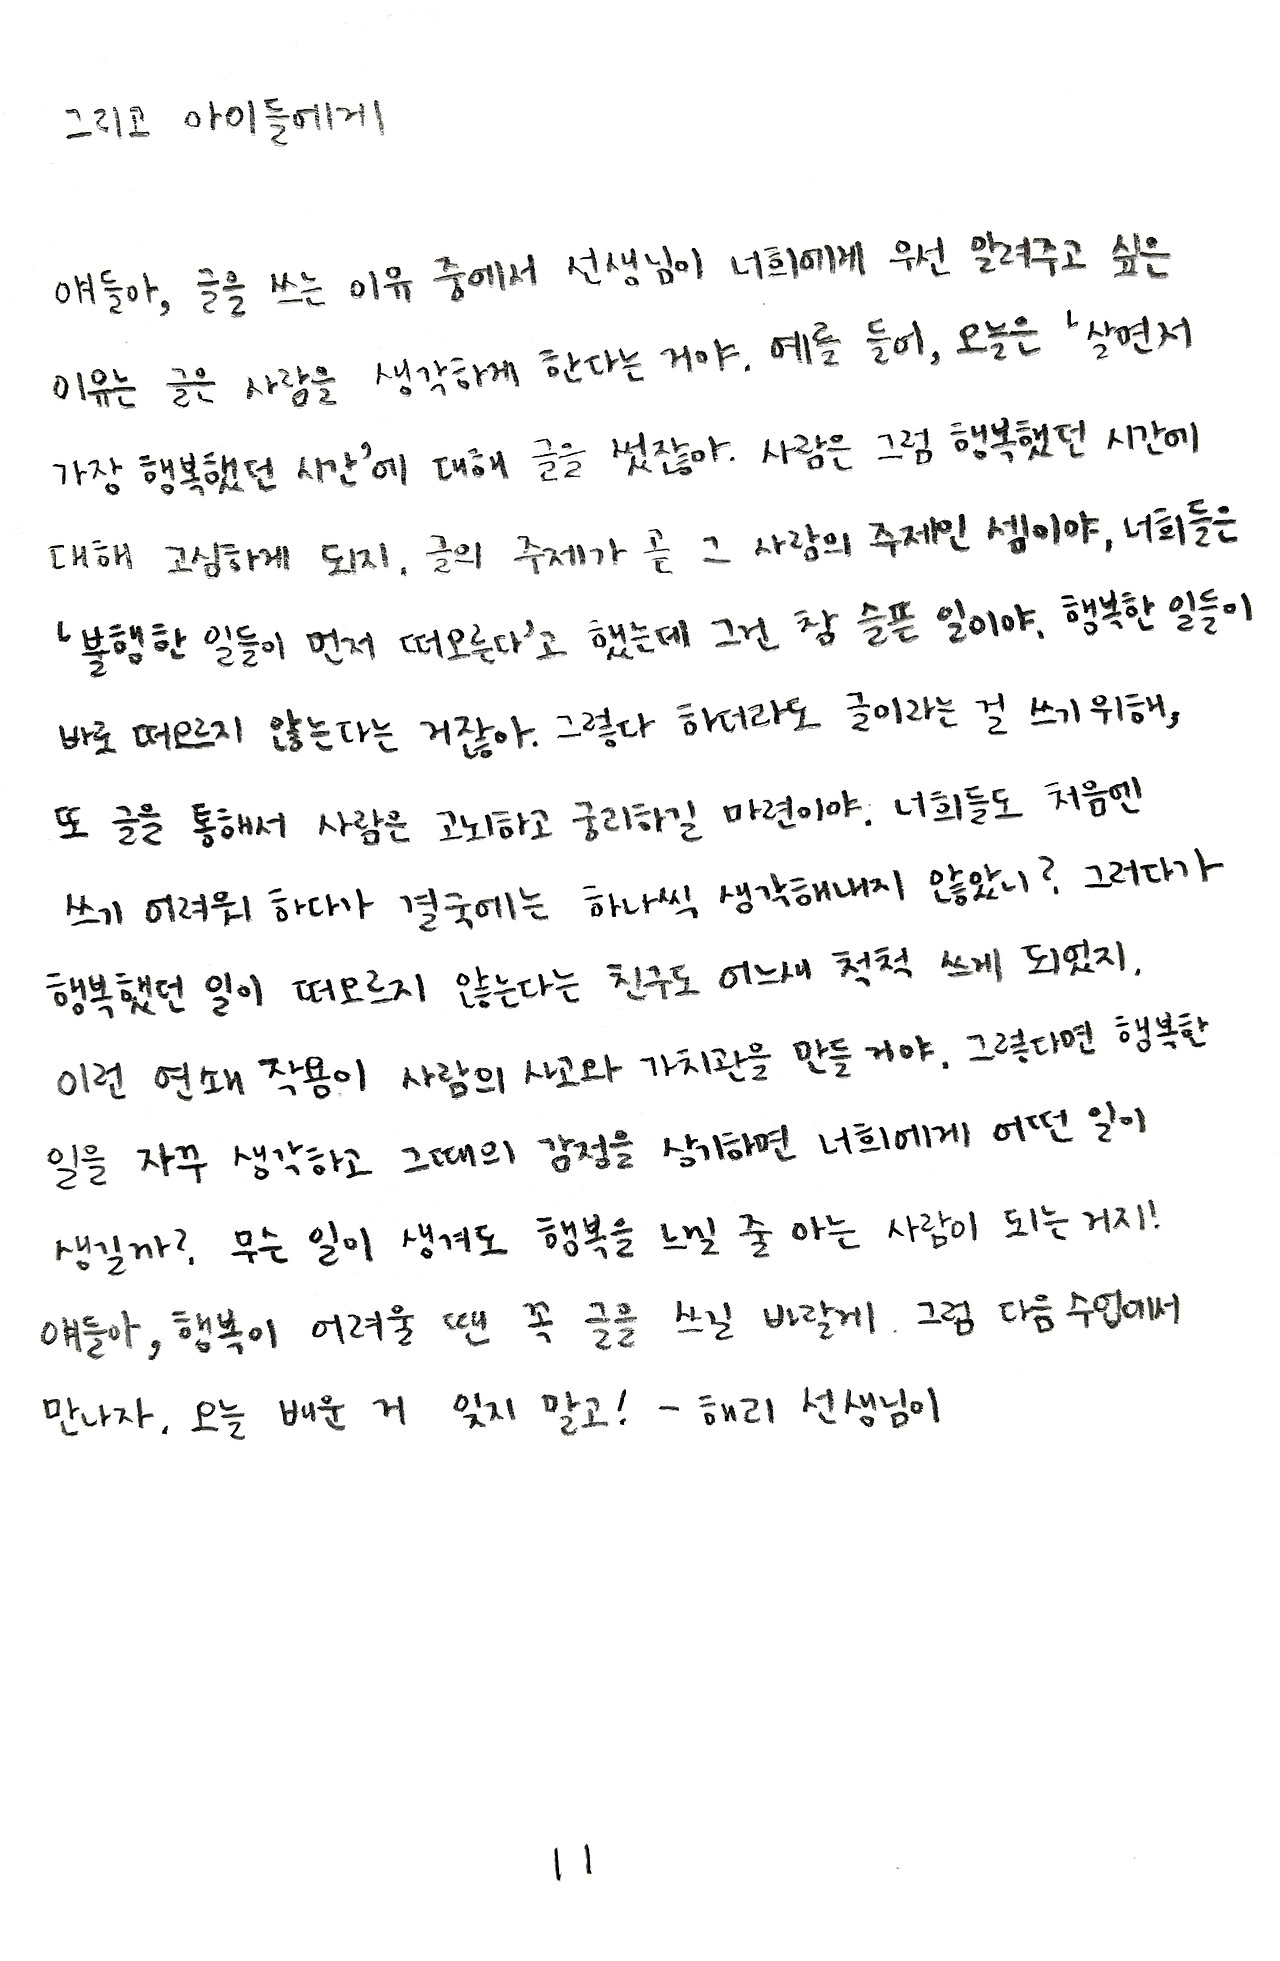 그리고 아이들에게
얘들아, 글을 쓰는 이유 중에서 선생님이 너희에게 우선 알려주고 싶은
이유는 글은 사람을 생각하게 한다는 거야. 예를 들어, 오늘은 '살면서
가장 행복했던 시간'에 대해 글을 썼잖아. 사람은 그럼 행복했던 시간에
대해 고심하게 되지. 글의 주제가 곧 그 사람의 주제인 셈이야, 너희들은
'불행한 일들이 먼저 떠오른다'고 했는데 그건 참 슬픈 일이야. 행복한 일들이
바로 떠오르지 않는다는 거잖아. 그렇다 하더라도 글이라는 걸 쓰기 위해,
또 글을 통해서 사람은 고뇌하고 궁리하길 마련이야. 너희들도 처음엔
쓰기 어려워 하다가 결국에는 하나씩 생각해내지 않았니? 그러다가
행복했던 일이 떠오르지 않는다는 친구도 어느새 척척 쓰게 되었지.
이런 연쇄 작용이 사람의 사고와 가치관을 만들 거야. 그렇다면 행복한
일을 자꾸 생각하고 그때의 감정을 상기하면 너희에게 어떤 일이
생길까? 무슨 일이 생겨도 행복을 느낄 줄 아는 사람이 되는 거지!
얘들아, 행복이 어려울 땐 꼭 글을 쓰길 바랄게. 그럼 다음 수업에서
만나자. 오늘 배운 거 잊지 말고! - 해리 선생님이
11